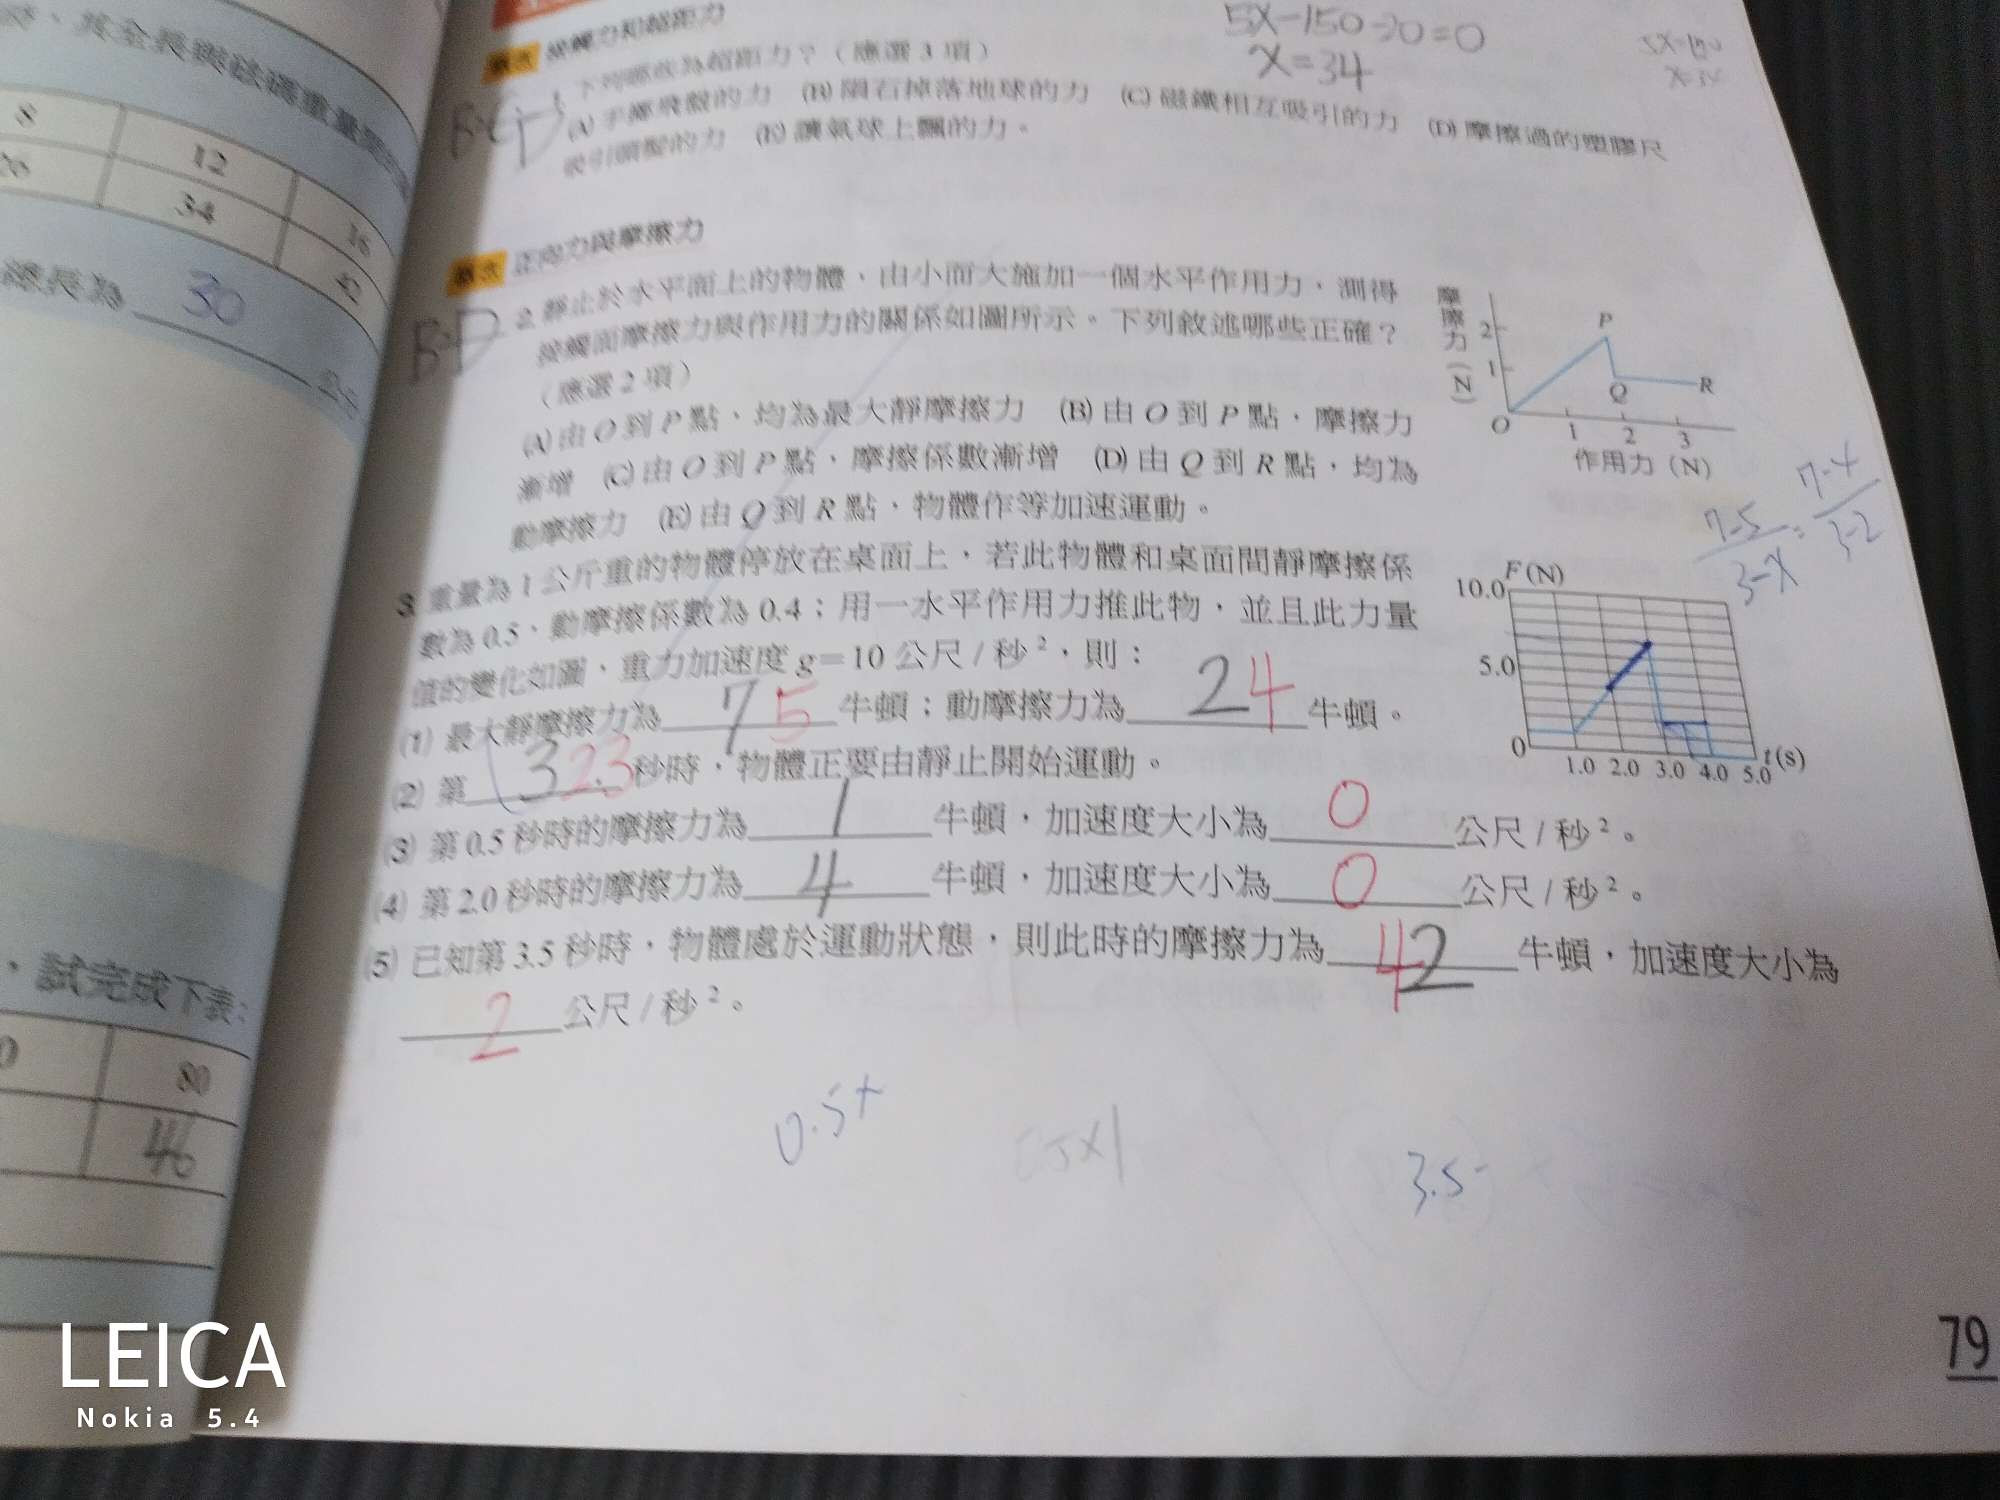 、其全長與砝碼重量關
8 12 16
26 34 42
總長為 30 公分
，試完成下表：
0 80
46
概念 接觸力和超距力
5x-150-20=0
x=34
B.C.D 1. 下列哪些為超距力？（應選 3 項）
(A) 手擲飛盤的力 (B) 隕石掉落地球的力 (C) 磁鐵相互吸引的力 (D) 摩擦過的塑膠尺
吸引頭髮的力 (E) 讓氣球上飄的力。
概念 正向力與摩擦力
B.D 2. 靜止於水平面上的物體，由小而大施加一個水平作用力，測得
接觸面摩擦力與作用力的關係如圖所示。下列敘述哪些正確？
（應選 2 項）
(A) 由 O 到 P 點，均為最大靜摩擦力 (B) 由 O 到 P 點，摩擦力
漸增 (C) 由 O 到 P 點，摩擦係數漸增 (D) 由 Q 到 R 點，均為
動摩擦力 (E) 由 Q 到 R 點，物體作等加速運動。
摩擦力(N)
2
1
P
Q
R
O 1 2 3
作用力 (N)
7-5/3-x = 7-4/3-2
3 重量為 1 公斤重的物體停放在桌面上，若此物體和桌面間靜摩擦係
數為 0.5、動摩擦係數為 0.4；用一水平作用力推此物，並且此力量
值的變化如圖，重力加速度 g=10 公尺 / 秒²，則：
(1) 最大靜摩擦力為 7 5 牛頓；動摩擦力為 2 4 牛頓。
(2) 第 3 2.3 秒時，物體正要由靜止開始運動。
(3) 第 0.5 秒時的摩擦力為 1 牛頓，加速度大小為 0 公尺 / 秒²。
(4) 第 2.0 秒時的摩擦力為 4 牛頓，加速度大小為 0 公尺 / 秒²。
(5) 已知第 3.5 秒時，物體處於運動狀態，則此時的摩擦力為 4 2 牛頓，加速度大小為
2 公尺 / 秒²。
F(N)
10.0
5.0
0
1.0 2.0 3.0 4.0 5.0 t(s)
0.5+
3.5-
79
LEICA
Nokia 5.4